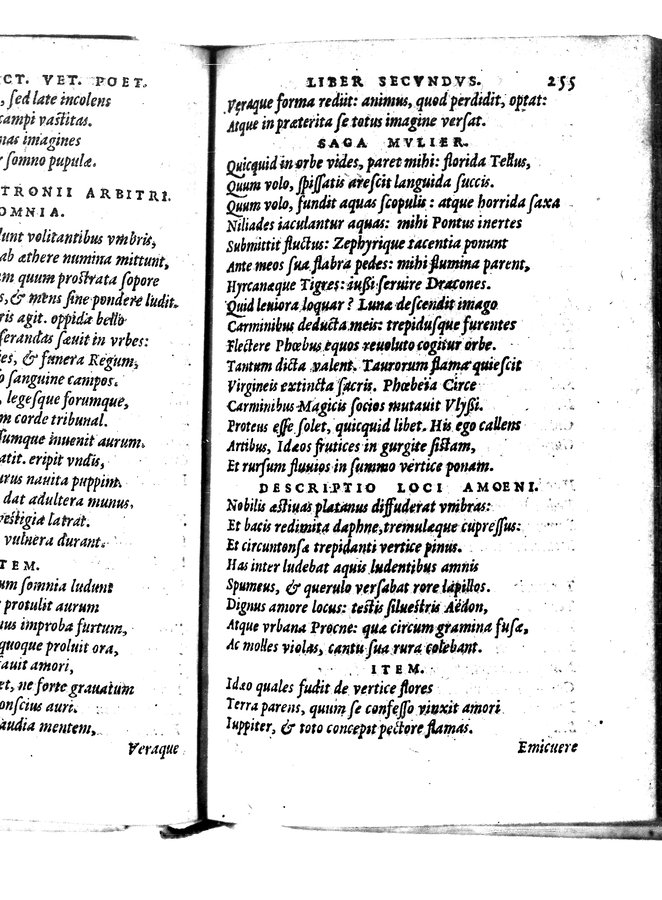 CT. VET. POET.
, sed late incolens
campi vastitas.
nas imagines
r somno pupulæ.
TRONII ARBITRI.
OMNIA.
lunt volitantibus vmbris,
ab æthere numina mittunt,
m quum prostrata sopore
s, & mens sine pondere ludit.
ris agit. oppida bello
ferandas sæuit in vrbes:
ies, & funera Regum,
o sanguine campos.
, legesque forumque,
m corde tribunal.
sumque inuenit aurum.
atit. eripit vndis,
urus nauita puppim.
dat adultera munus.
vestigia latrat.
vulnera durant.
TEM.
um somnia ludunt
protulit aurum
nus improba furtum,
quoque proluit ora,
auit amori,
et, ne forte grauatum
onscius auri.
audia mentem,
Veraque
LIBER SECVNDVS. 255
Veraque forma rediit: animus, quod perdidit, optat:
Atque in præterita se totus imagine versat.
SAGA MVLIER.
Quicquid in orbe vides, paret mihi: florida Tellus,
Quum volo, spissatis arescit languida succis.
Quum volo, fundit aquas scopulis: atque horrida saxa
Niliades iaculantur aquas: mihi Pontus inertes
Submittit fluctus: Zephyrique tacentia ponunt
Ante meos sua flabra pedes: mihi flumina parent,
Hyrcanæque Tigres: iussi seruire Dracones.
Quid leuiora loquar? Lunæ descendit imago
Carminibus deducta meis: trepidusque furentes
Flectere Phœbus equos reuoluto cogitur orbe.
Tantum dicta valent. Taurorum flamæ quiescit
Virgineis extincta sacris. Phœbeia Circe
Carminibus Magicis socios mutauit Vlyssi.
Proteus esse solet, quicquid libet. His ego callens
Artibus, Idæos frutices in gurgite sistam,
Et rursum fluuios in summo vertice ponam.
DESCRIPTIO LOCI AMOENI.
Nobilis æstiuas platanus diffuderat vmbras:
Et bacis redimita daphne, tremulæque cupressus:
Et circuntonsæ trepidanti vertice pinus.
Has inter ludebat aquis ludentibus amnis
Spumeus, & querulo versabat rore lapillos.
Dignus amore locus: testis siluestris Aëdon,
Atque vrbana Procne: quæ circum gramina fusæ,
Ac molles violas, cantu sua rura colebant.
ITEM.
Idæo quales fudit de vertice flores
Terra parens, quum se confesso viuxit amori
Iuppiter, & toto concepit pectore flamas.
Emicuere